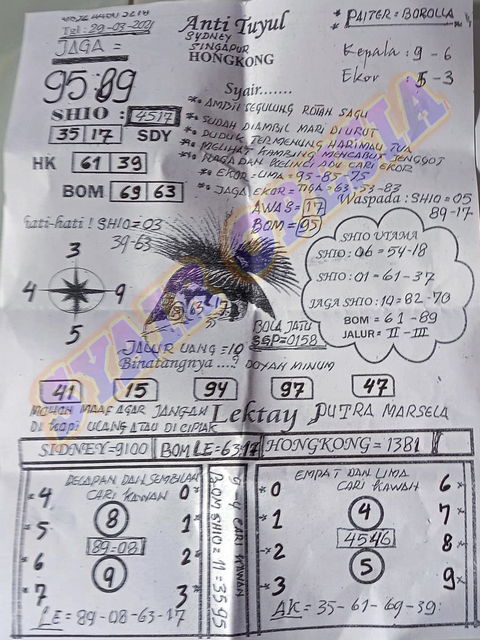 Tgl : 29-03-2021
Anti Tuyul
SYDNEY
SINGAPUR
HONGKONG
* PAITER = BOROLLA
JAGA =
95 89
Kepala : 9 - 6
Ekor : 5 - 3
SHIO : 4517
35 17 SDY
HK 61 39
BOM 69 63
Syair.......
*• AMBIL SEGULUNG ROTAN SAGU
*• SUDAH DIAMBIL MARI DIURUT
*• DUDUK TERMENUNG HARIMAU TUA
*• MELIHAT KAMBING MENCABUT JENGGOT
*• RAGA DAN KELING ADU CARI EKOR
*• EKOR = LIMA = 95-85-75
*• JAGA EKOR = TIGA = 63-53-83
AWAS = 17
BOM = 95
Waspada : SHIO = 05
89-17
hati-hati ! SHIO = 03
39-63
3
4 9
5
SHIO UTAMA
SHIO : 06 = 54-18
SHIO : 01 = 61-37
JAGA SHIO : 10 = 82-70
BOM = 61-89
JALUR = II - III
JALUR UANG = 10
Binatangnya ...?
DOYAN MINUM
BOLA JATU
SGP = 0158
41 15 94 97 47
MOHON MAAF AGAR JANGAN
DI KOPI ULANG ATAU DI CIPLAK
Lektay PUTRA MARSELA
SIDNEY = 9100 BOM LE = 63-17 HONGKONG = 1381
DELAPAN DAN SEMBILAN
CARI KAWAN
*4 0*
*5 8 1*
89-08
*6 2*
*7 9 3*
LE = 89-08-63-17
CARI KAWAN
BOM SHIO = 11 = 35 95
EMPAT DAN LIMA
CARI KAWAN
*0 6*
*1 4 7*
4546
*2 8*
*3 5 9*
AK = 35-61-69-39:
SYAIR